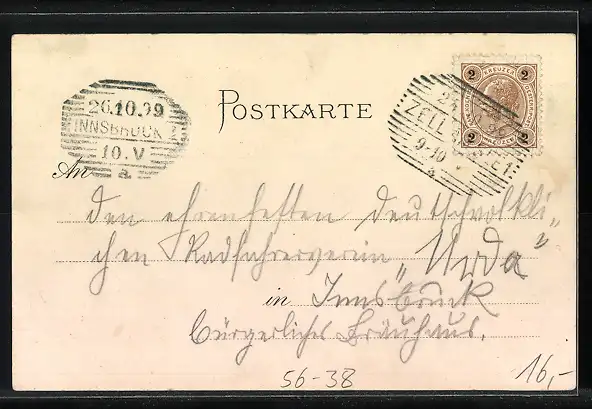 26.10.99
INNSBRUCK
10.V
a
POSTKARTE
2 KREUZER 2
2 2
ZELL
9-10
An
den ehrenfesten deutschvölkli-
chen Radfahrerverein „Urda"
in Innsbruck
Bürgerliches Bräuhaus.
56-38
16,-